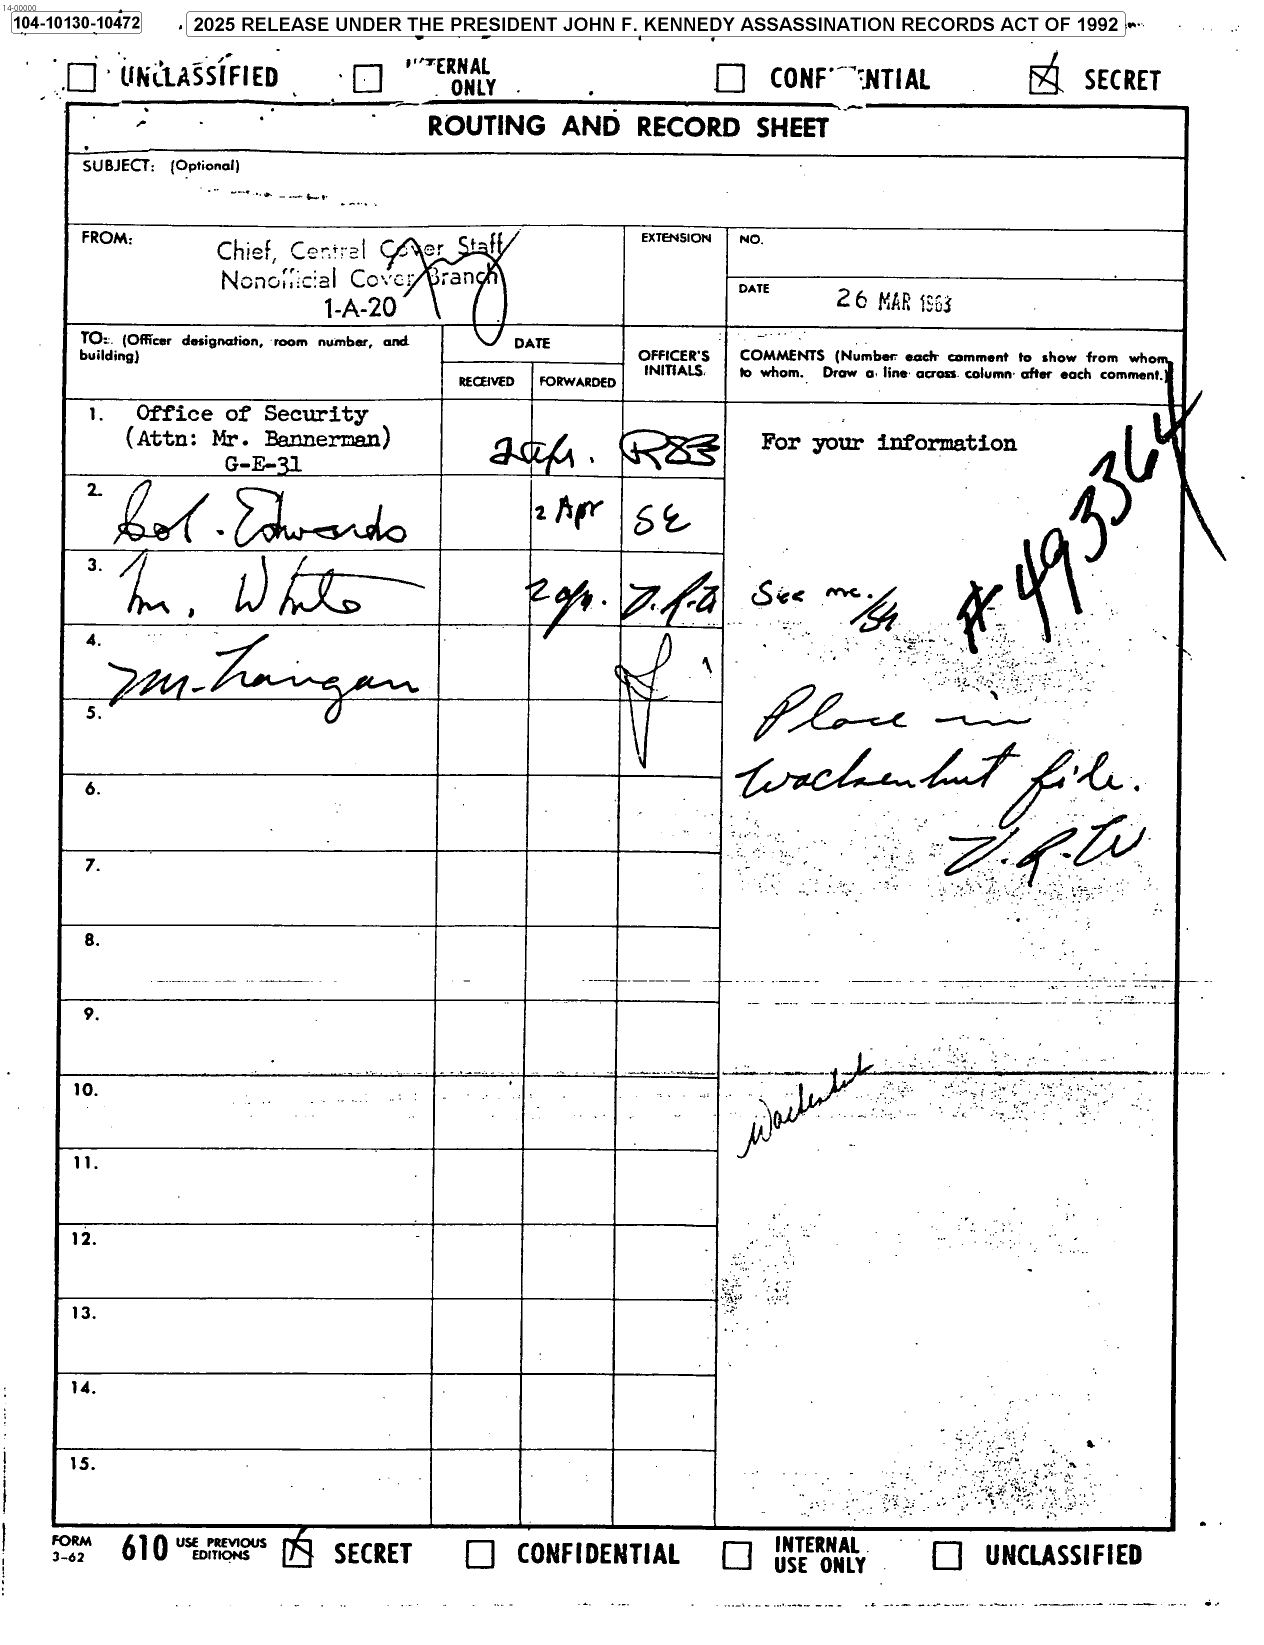 14-00000
104-10130-10472
2025 RELEASE UNDER THE PRESIDENT JOHN F. KENNEDY ASSASSINATION RECORDS ACT OF 1992
UNCLASSIFIED ERNAL ONLY CONF ENTIAL SECRET
ROUTING AND RECORD SHEET
SUBJECT: (Optional)
FROM:
Chief, Central Cover Staff
Nonofficial Cover Branch
1-A-20
EXTENSION
NO.
DATE
26 MAR 1963
TO: (Officer designation, room number, and
building)
DATE
RECEIVED FORWARDED
OFFICER'S
INITIALS
COMMENTS (Number each comment to show from whom
to whom. Draw a line across column after each comment.)
1. Office of Security
(Attn: Mr. Bannerman)
G-E-31
2 Apr.
For your information
# 493364
2. Col. Edwards 2 Apr SE
3. Mr. White 2 Apr.
See me.
4.
5.
Place in
Wackenhut file.
V.R.W
6.
7.
8.
9.
10.
Wackenhut
11.
12.
13.
14.
15.
FORM
3-62
610
USE PREVIOUS
EDITIONS
SECRET CONFIDENTIAL INTERNAL
USE ONLY
UNCLASSIFIED